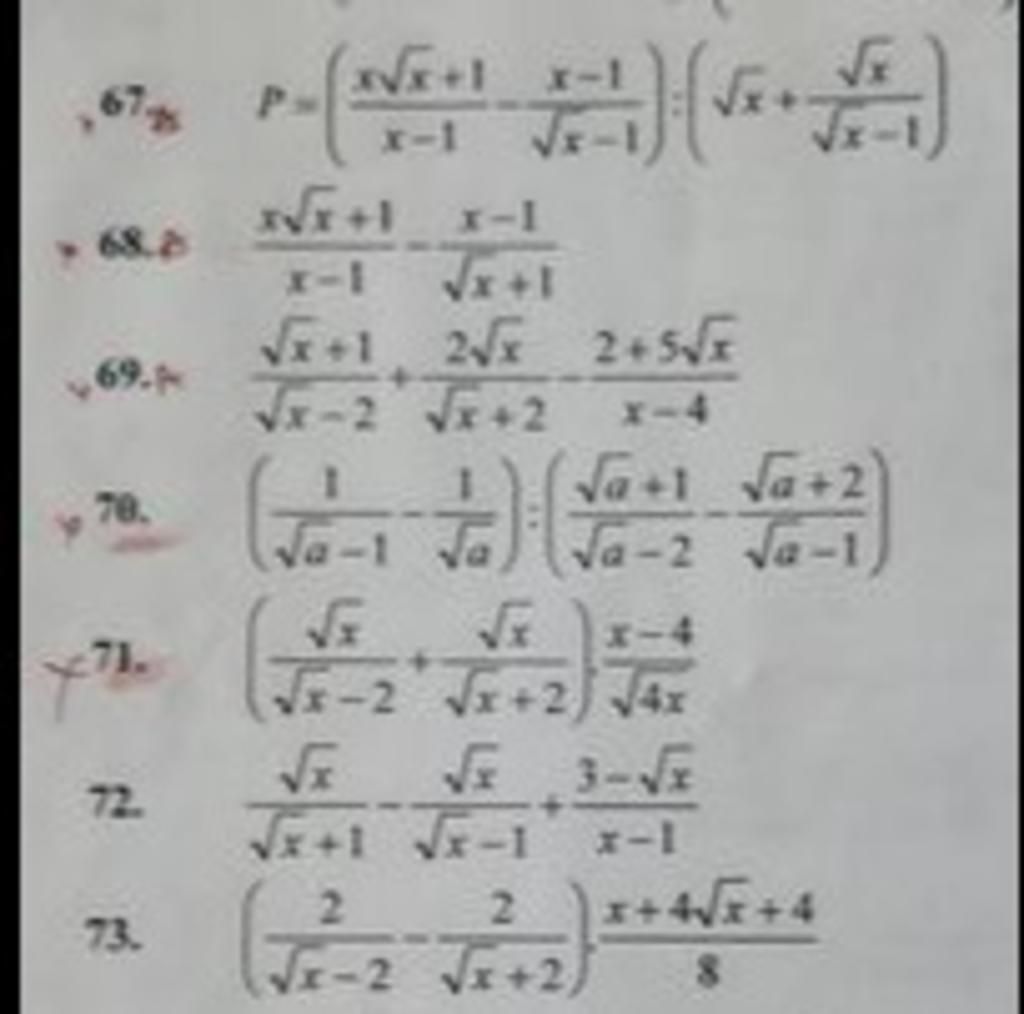 67. P = ( (x√x+1)/(x−1) − (x−1)/(√x−1) ) : ( √x + √x/(√x−1) )
68. (x√x+1)/(x−1) − (x−1)/(√x+1)
69. (√x+1)/(√x−2) + 2√x/(√x+2) − (2+5√x)/(x−4)
70. ( 1/(√a−1) − 1/√a ) : ( (√a+1)/(√a−2) − (√a+2)/(√a−1) )
71. ( √x/(√x−2) + √x/(√x+2) ) . (x−4)/√4x
72. √x/(√x+1) − √x/(√x−1) + (3−√x)/(x−1)
73. ( 2/(√x−2) − 2/(√x+2) ) . (x+4√x+4)/8